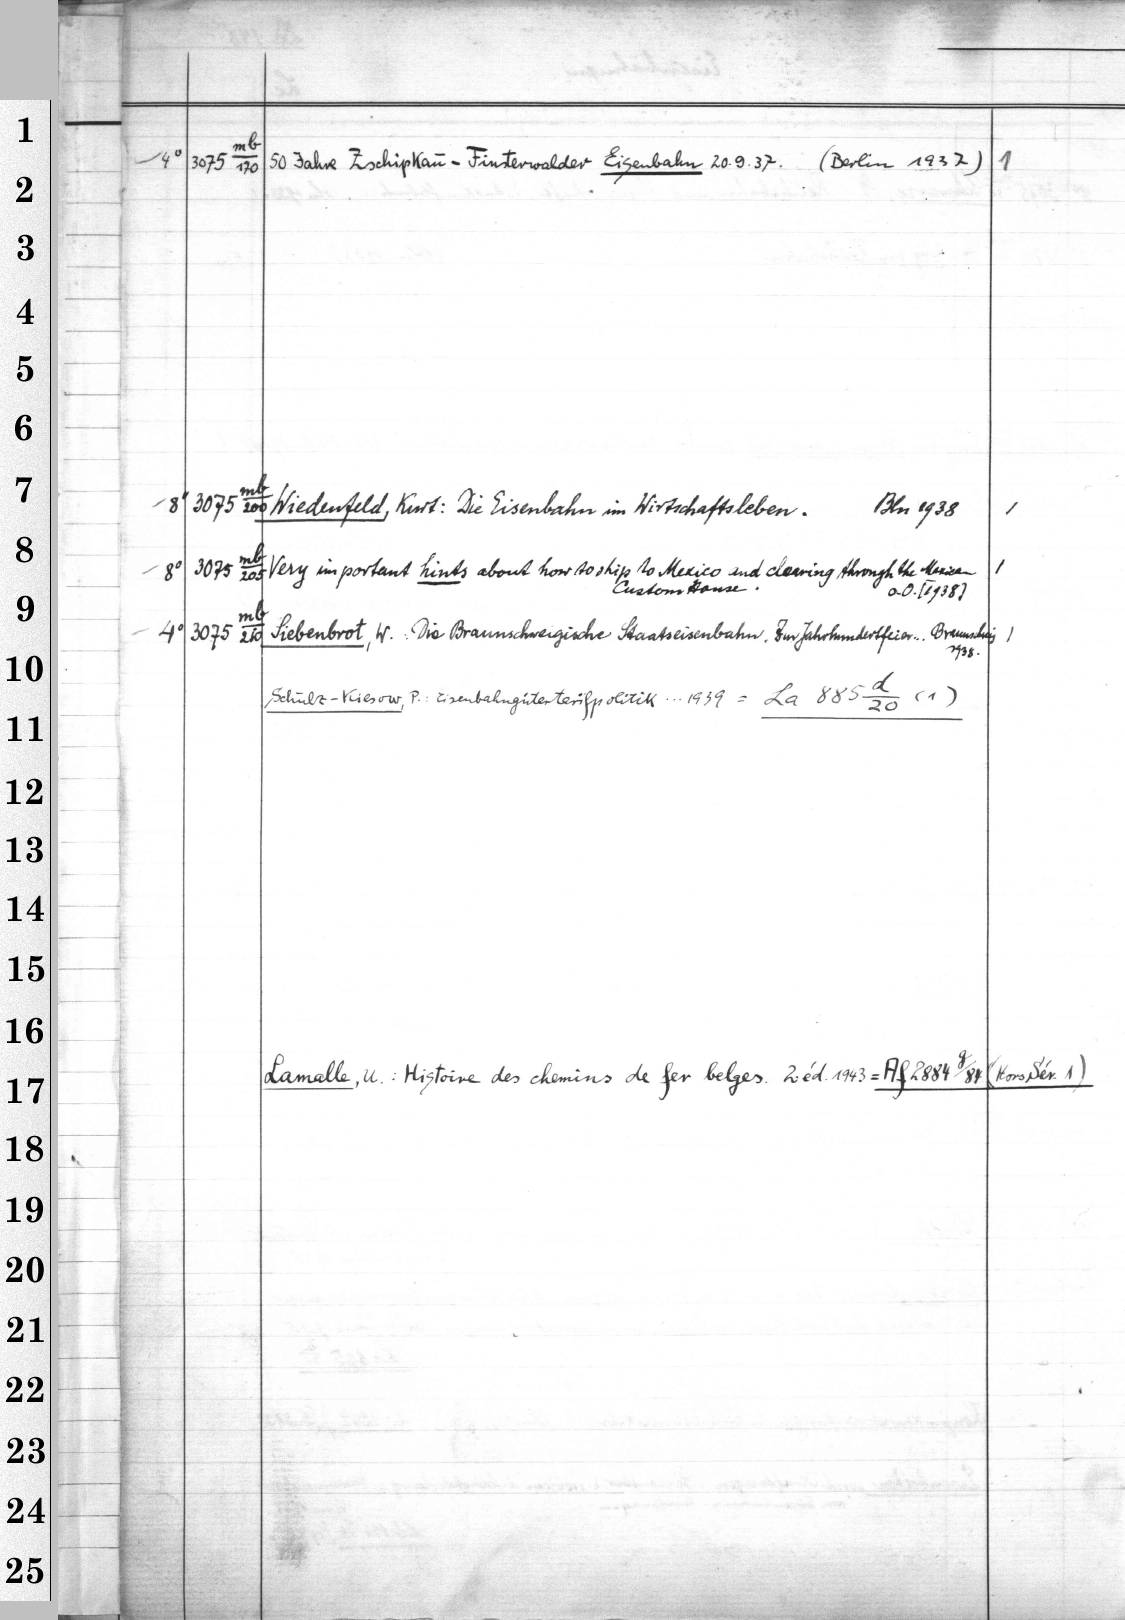 1
4° 3075 mb/170 50 Jahre Zschipkau - Finsterwalder Eisenbahn 20.9.37. (Berlin 1937) 1
2
3
4
5
6
7
8° 3075 mb/200 Wiedenfeld, Kurt: Die Eisenbahn im Wirtschaftsleben. Bln 1938 1
8
8° 3075 mb/205 Very important hints about how to ship to Mexico and clearing through the Mexican 1
Custom House. o.O. [1938]
9
4° 3075 mb/210 Siebenbrot, W.: Die Braunschweigische Staatseisenbahn. Zur Jahrhundertfeier... Braunschweig 1
1938.
10
Schulz-Kiesow, P.: Eisenbahngütertarifpolitik ... 1939 = La 885 d/20 (1)
11
12
13
14
15
16
Lamalle, U.: Histoire des chemins de fer belges. 2. éd. 1943 = Af 2884 g/84 (Hors Sér. 1)
17
18
19
20
21
22
23
24
25